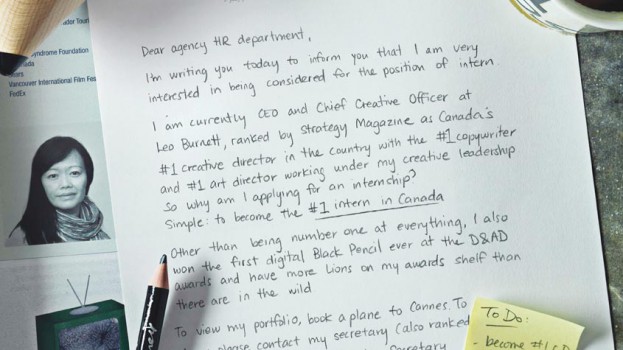 ader Touri
yndrome Foundation
ada
ears
Vancouver International Film Fes
FedEx
Dear agency HR department,
I'm writing you today to inform you that I am very
interested in being considered for the position of intern.
I am currently CEO and Chief Creative Officer at
Leo Burnett, ranked by Strategy Magazine as Canada's
#1 creative director in the country with the #1 copywriter
and #1 art director working under my creative leadership
So why am I applying for an internship?
Simple: to become the #1 intern in Canada
Other than being number one at everything, I also
won the first digital Black Pencil ever at the D&AD
awards and have more Lions on my awards shelf than
there are in the wild
To view my portfolio, book a plane to Cannes To
please contact my secretary (also ranked
Secretary
To Do:
- become #1